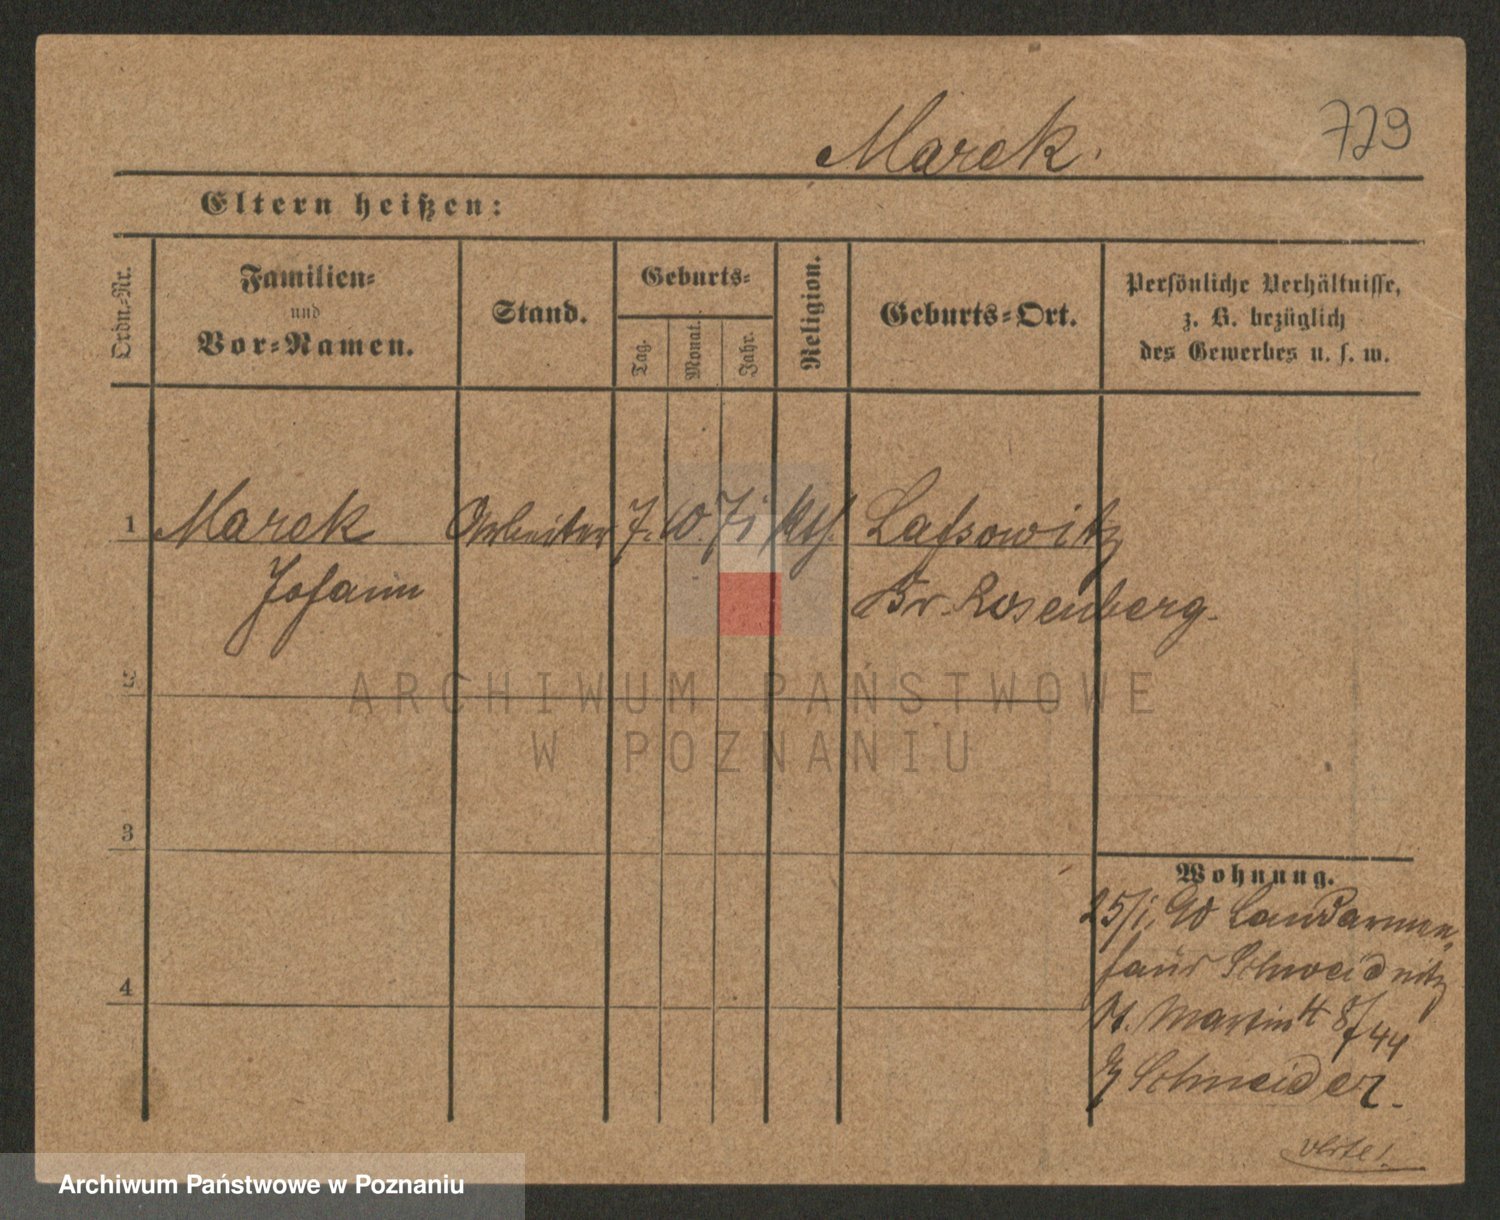 729
Marek.
Eltern heißen:
Ordn.-Nr.
Familien-
und
Vor-Namen.
Stand.
Geburts-
Tag.
Monat.
Jahr.
Religion.
Geburts-Ort.
Persönliche Verhältnisse,
z. B. bezüglich
des Gewerbes u. s. w.
1 Marek Arbeiter 7. 10. 71 kth. Lassowitz
Johann Kr. Rosenberg.
2
3
4
Wohnung.
25/1. 90 Landarmen-
haus Schweidnitz
St. Martin 44
b/ Schneider.
verte!
ARCHIWUM PAŃSTWOWE
W POZNANIU
Archiwum Państwowe w Poznaniu